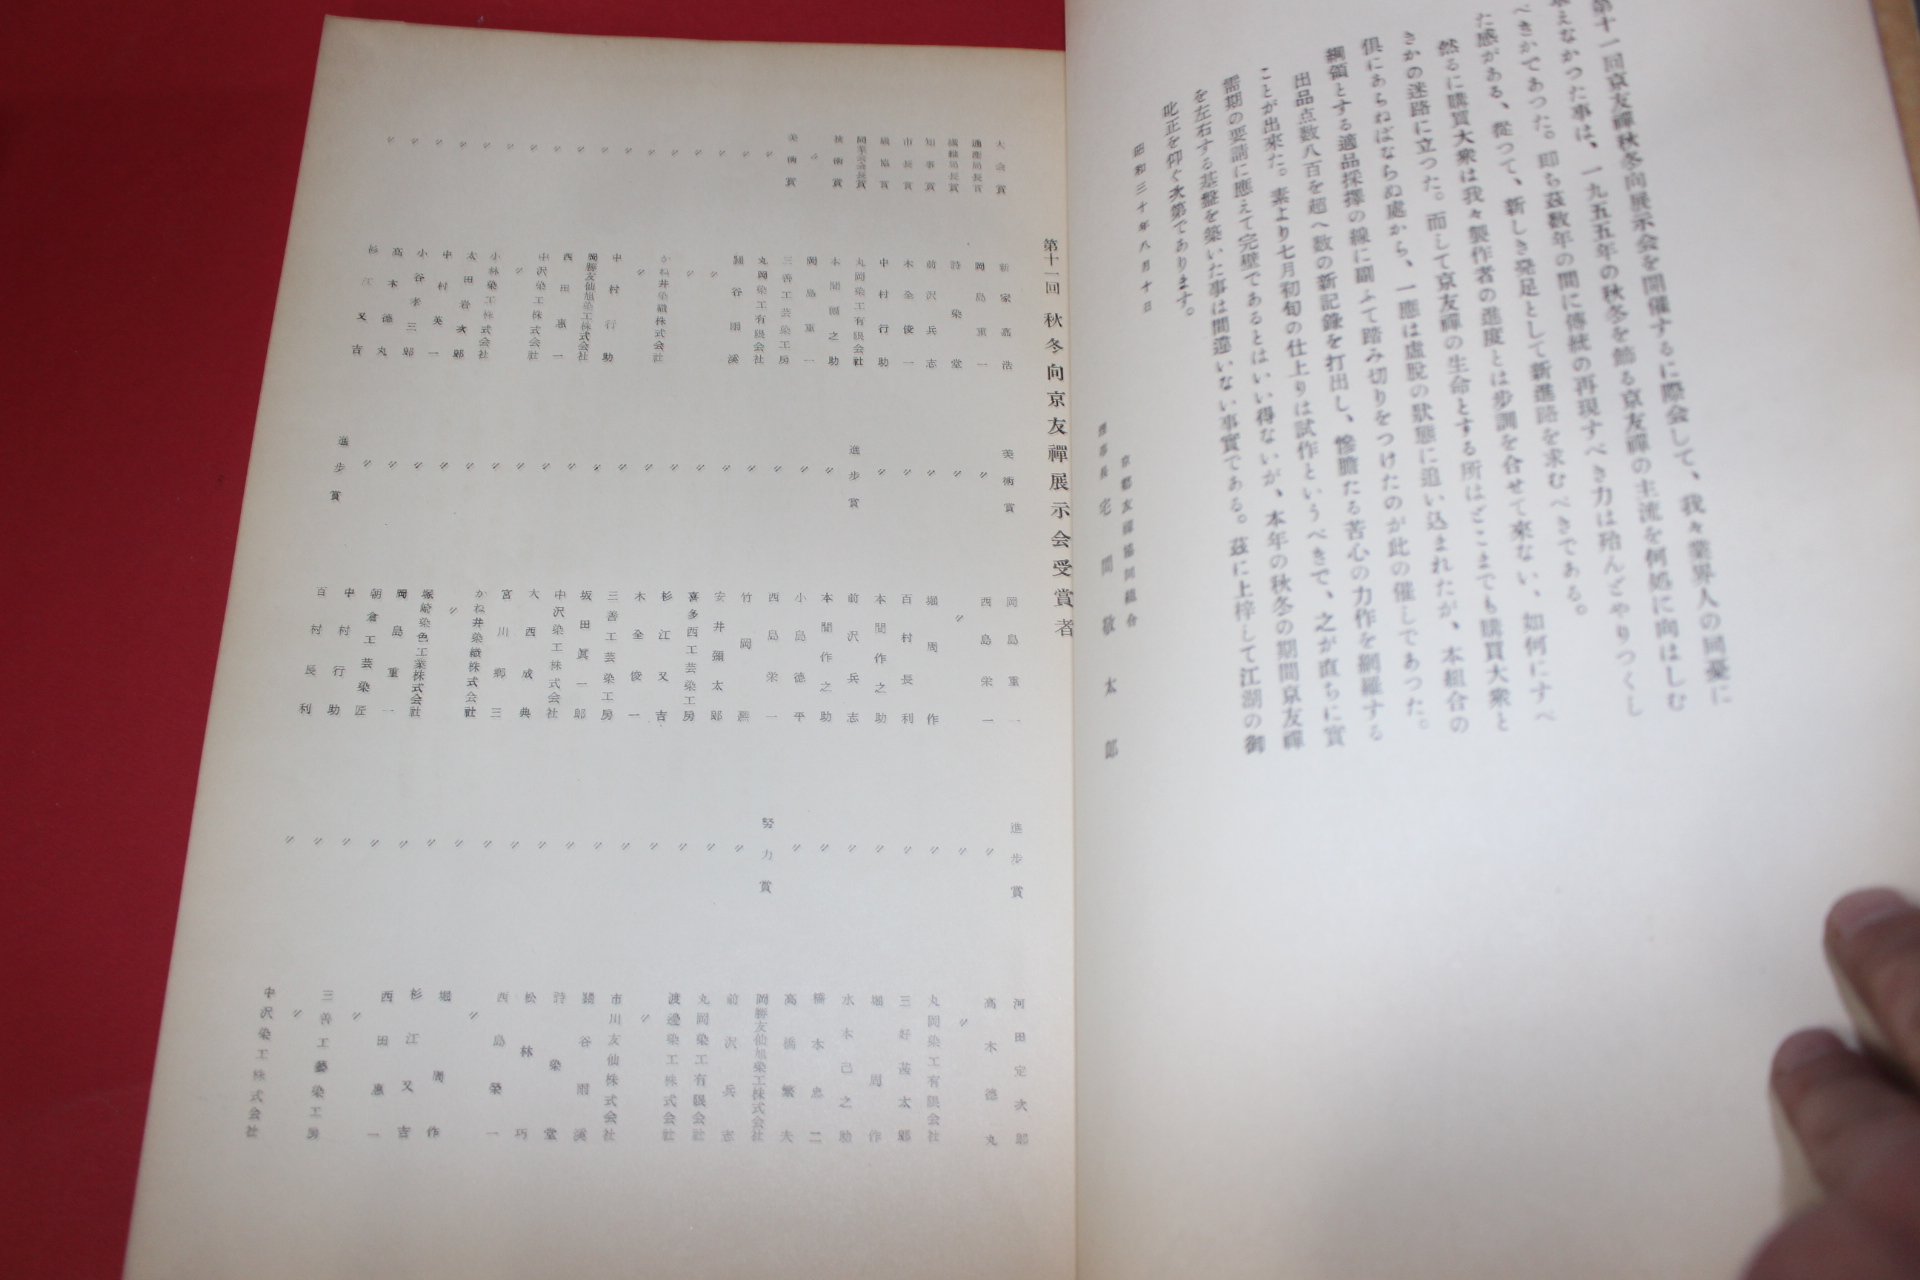 第十一回京友禪秋冬向展示会を開催するに際会して、我々業界人の同憂に
えなかつた事は、一九五五年の秋冬を飾る京友禪の主流を何処に向はしむ
べきかであつた。即ち茲数年の間に傳統の再現すべき力は殆んどやりつくし
た感がある、從つて、新しき発足として新進路を求むべきである。
然るに購買大衆は我々製作者の進度とは步調を合せて来ない、如何にすべ
きかの迷路に立つた。而して京友禪の生命とする所はどこまでも購買大衆と
倶にあらねばならぬ處から、一應は虚脫の狀態に追い込まれたが、本組合の
綱領とする適品採擇の線に副ふて踏み切りをつけたのが此の催しであつた。
出品点数八百を超へ数の新記錄を打出し、慘膽たる苦心の力作を網羅する
ことが出来た。素より七月初旬の仕上りは試作というべきで、之が直ちに實
需期の要請に應えて完璧であるとはいい得ないが、本年の秋冬の期間京友禪
を左右する基盤を築いた事は間違いない事實である。茲に上梓して江湖の御
叱正を仰ぐ次第であります。
昭和三十年八月十日
京都友禪協同組合
理事長 宅間敬太郎
第十一回 秋冬向京友禪展示会受賞者
大会賞 新家嘉浩
通産局長賞 岡島重一
纖維局長賞 詩染堂
知事賞 前沢兵志
市長賞 木全俊一
織協賞 中村行助
同業会会長賞 丸岡染工有限会社
技術賞 本間作之助
〃 岡島重一
美術賞 三善工芸染工房
〃 丸岡染工有限会社
〃 穎谷雨溪
〃 〃
〃 〃
〃 かね井染織株式会社
〃 〃
〃 中村行助
〃 岡勝友仙旭染工株式会社
〃 西田惠一
〃 中沢染工株式会社
〃 〃
〃 小林染工株式会社
〃 太田岩次郎
〃 中村英一
〃 小谷孝三郎
〃 高木德丸
〃 杉江又吉
美術賞 岡島重一
〃 西島栄一
〃 〃
〃 堀周作
〃 百村長利
〃 本間作之助
進步賞 前沢兵志
〃 本間作之助
〃 小島德平
〃 西島栄一
〃 竹岡燕
〃 安井彌太郎
〃 喜多西工芸染工房
〃 杉江又吉
〃 木全俊一
〃 三善工芸染工房
〃 坂田眞一郎
〃 中沢染工株式会社
〃 大西成典
〃 宮川郷三
〃 かね井染織株式会社
〃 〃
〃 堀崎染色工業株式会社
〃 岡島重一
〃 朝倉工芸染匠
〃 中村行助
進步賞 百村長利
進步賞 河田定次郎
〃 高木德丸
〃 〃
〃 丸岡染工有限会社
〃 三好甚太郎
〃 堀周作
〃 水本己之助
〃 橋本忠二
〃 高橋繁夫
努力賞 岡勝友仙旭染工株式会社
〃 前沢兵志
〃 丸岡染工有限会社
〃 渡邊染工株式会社
〃 〃
〃 市川友仙株式会社
〃 穎谷雨溪
〃 詩染堂
〃 松林巧
〃 西島榮一
〃 〃
〃 堀周作
〃 杉江又吉
〃 西田惠一
〃 〃
〃 三善工藝染工房
〃 〃
〃 中沢染工株式会社